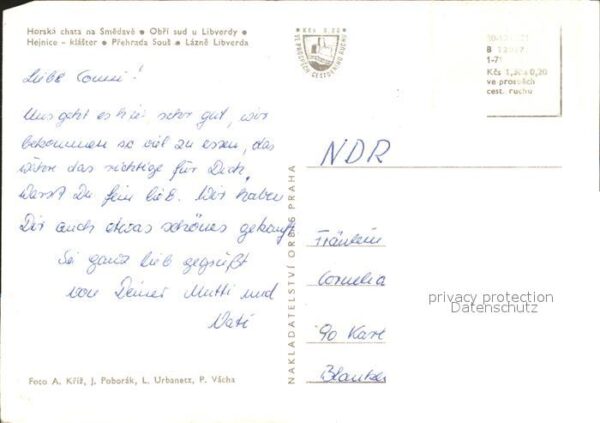 Horská chata na Smědavě • Obří sud u Libverdy •
Hejnice - klášter • Přehrada Souš • Lázně Libverda
Kčs 0,20
VE PROSPĚCH CESTOVNÍHO RUCHU
B
1-71
Kčs 1,50+0,20
ve prospěch
cest. ruchu
Liebe Conni!
Uns geht es hier sehr gut, wir
bekommen so viel zu essen, das
wäre das richtige für Dich.
Warst Du fein lieb. Wir haben
Dir auch etwas schönes gekauft
Sei ganz lieb gegrüßt
von Deiner Mutti und
Vati
NDR
Fräulein
Cornelia
90 Karl
NAKLADATELSTVÍ ORBIS PRAHA
privacy protection
Datenschutz
Foto A. Kříž, J. Poborák, L. Urbanetz, P. Vácha